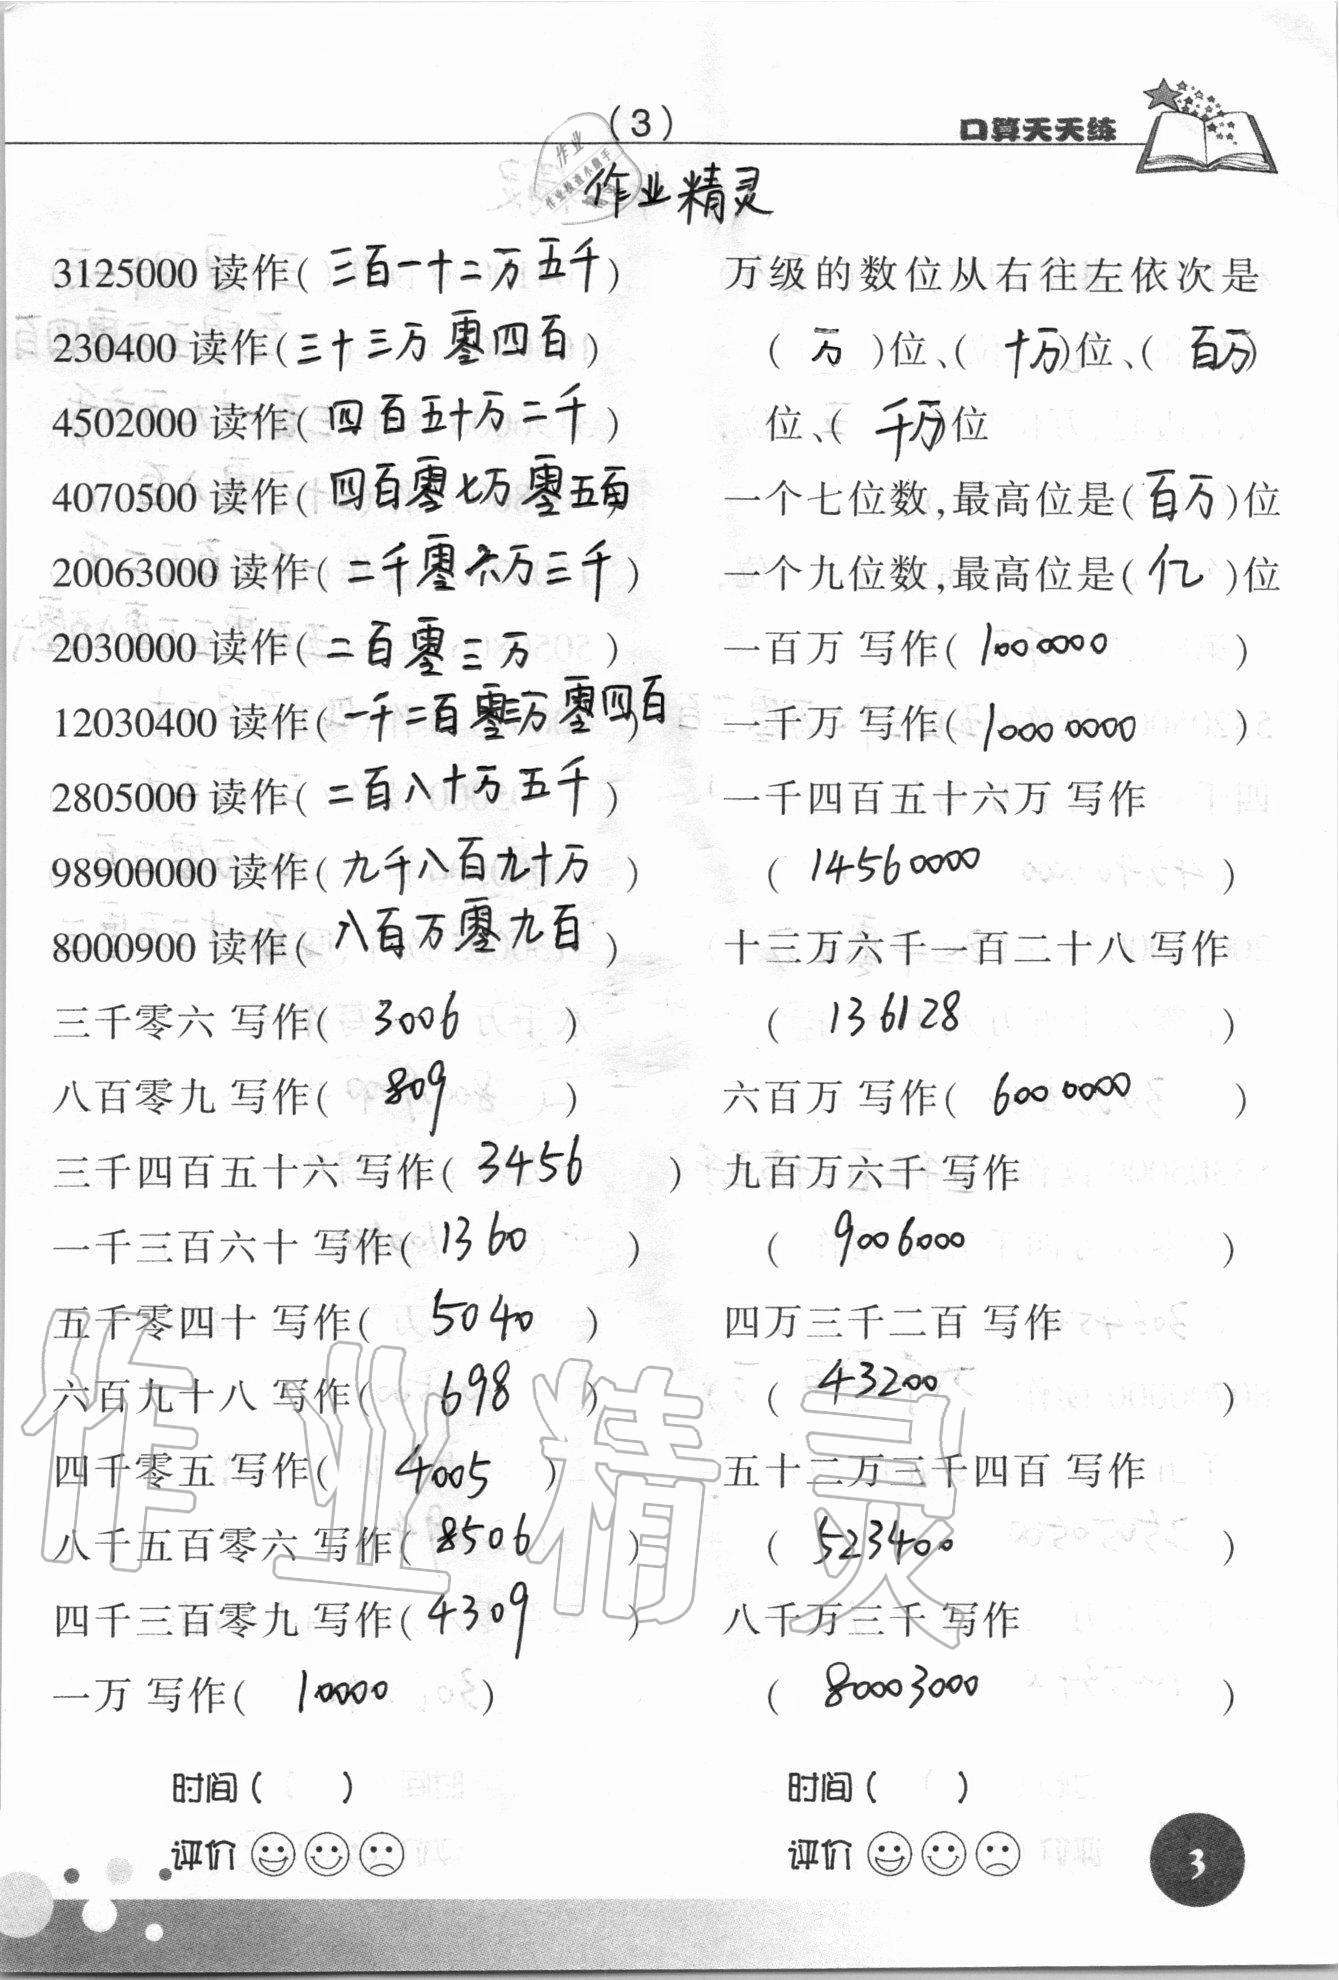 (3)
口算天天练
作业精灵
3125000 读作( 三百一十二万五千 )
230400 读作( 三十三万零四百 )
4502000 读作( 四百五十万二千 )
4070500 读作( 四百零七万零五百 )
20063000 读作( 二千零六万三千 )
2030000 读作( 二百零三万 )
12030400 读作( 一千二百零三万零四百 )
2805000 读作( 二百八十万五千 )
98900000 读作( 九千八百九十万 )
8000900 读作( 八百万零九百 )
三千零六 写作( 3006 )
八百零九 写作( 809 )
三千四百五十六 写作( 3456 )
一千三百六十 写作( 1360 )
五千零四十 写作( 5040 )
六百九十八 写作( 698 )
四千零五 写作( 4005 )
八千五百零六 写作( 8506 )
四千三百零九 写作( 4309 )
一万 写作( 10000 )
时间( )
评价
万级的数位从右往左依次是
( 万 )位、( 十万 )位、( 百万 )
位、( 千万 )位
一个七位数,最高位是( 百万 )位
一个九位数,最高位是( 亿 )位
一百万 写作( 1000000 )
一千万 写作( 10000000 )
一千四百五十六万 写作
( 14560000 )
十三万六千一百二十八 写作
( 136128 )
六百万 写作( 6000000 )
九百万六千 写作
( 9006000 )
四万三千二百 写作
( 43200 )
五十二万三千四百 写作
( 523400 )
八千万三千 写作
( 80003000 )
时间( )
评价
3
作业精灵